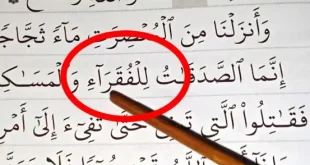 وَأَنزَلْنَا مِنَ ٱلْمُعْصِرَٰتِ مَآءً ثَجَّاجًا
إِنَّمَا ٱلصَّدَقَـٰتُ لِلْفُقَرَآءِ وَٱلْمَسَـٰكِ
فَقَـٰتِلُوا۟ ٱلَّتِى تَبْغِى حَتَّىٰ تَفِىٓءَ إِلَىٰٓ أَمْرِ